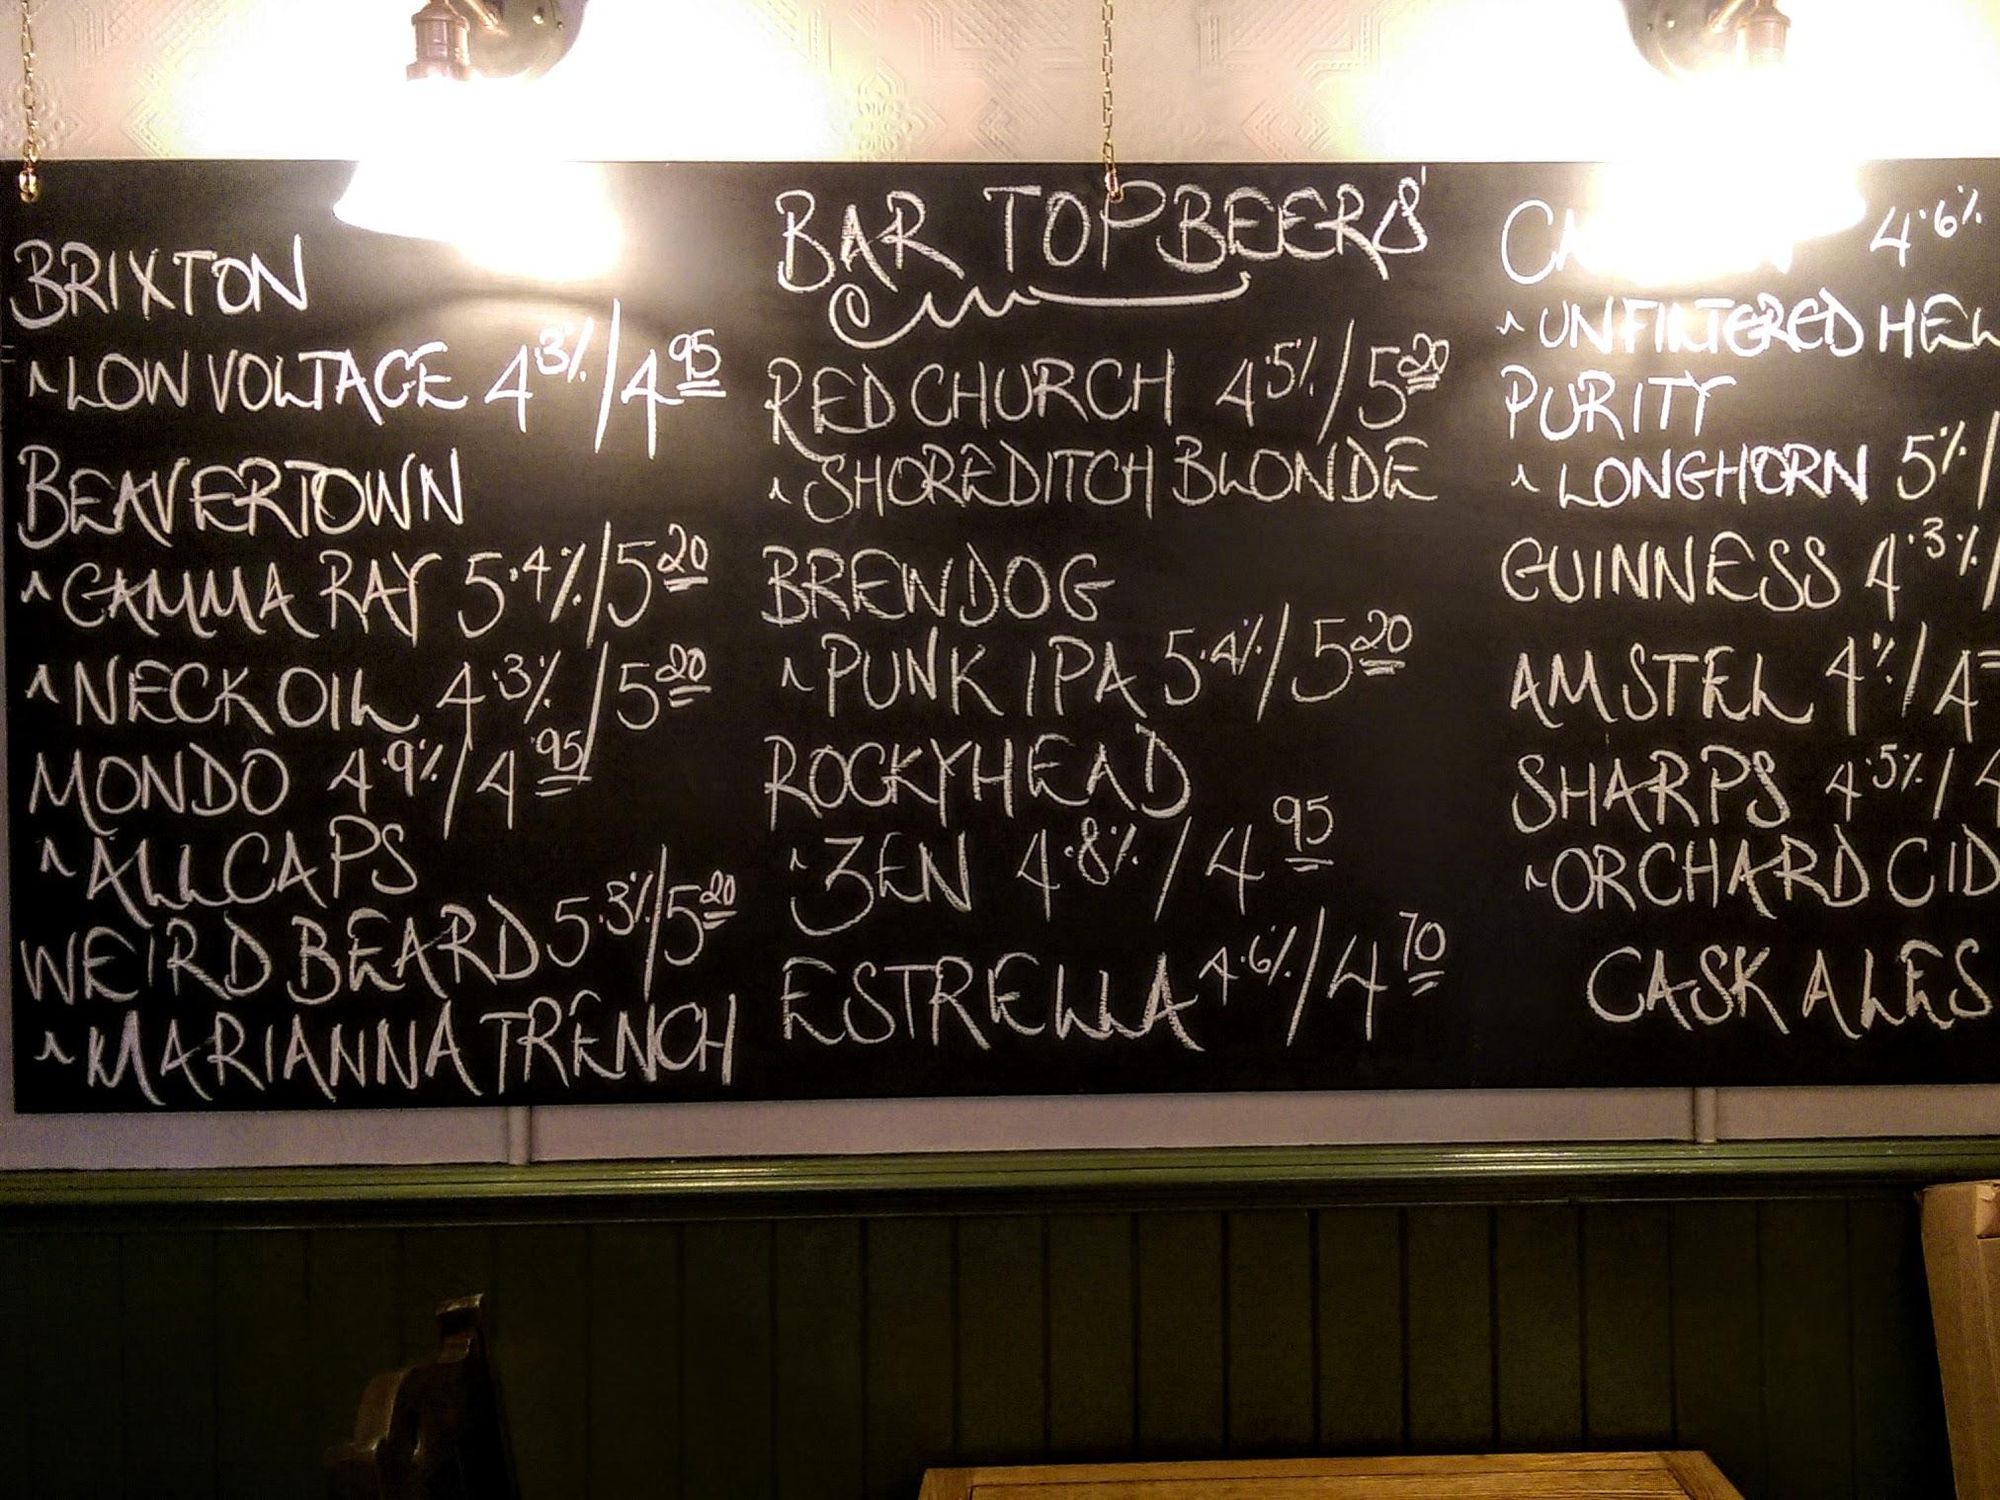 BRIXTON
~LOW VOLTAGE 4.3%/4 95
BEAVERTOWN
~GAMMA RAY 5.4%/5 20
~NECK OIL 4.3%/5 20
MONDO 4.9%/4 95
~ALL CAPS
WEIRD BEARD 5.3%/5 20
~MARIANNA TRENCH
BAR TOP BEERS'
REDCHURCH 4.5%/5 20
~SHOREDITCH BLONDE
BREWDOG
~PUNK IPA 5.4%/5 20
ROCKYHEAD
~ZEN 4.8%/4 95
ESTRELLA 4.6%/4 70
4.6%
~UNFILTERED HEL
PURITY
~LONGHORN 5%/
GUINNESS 4.3%/
AMSTEL 4%/4
SHARPS 4.5%/4
~ORCHARD CID
CASK ALES